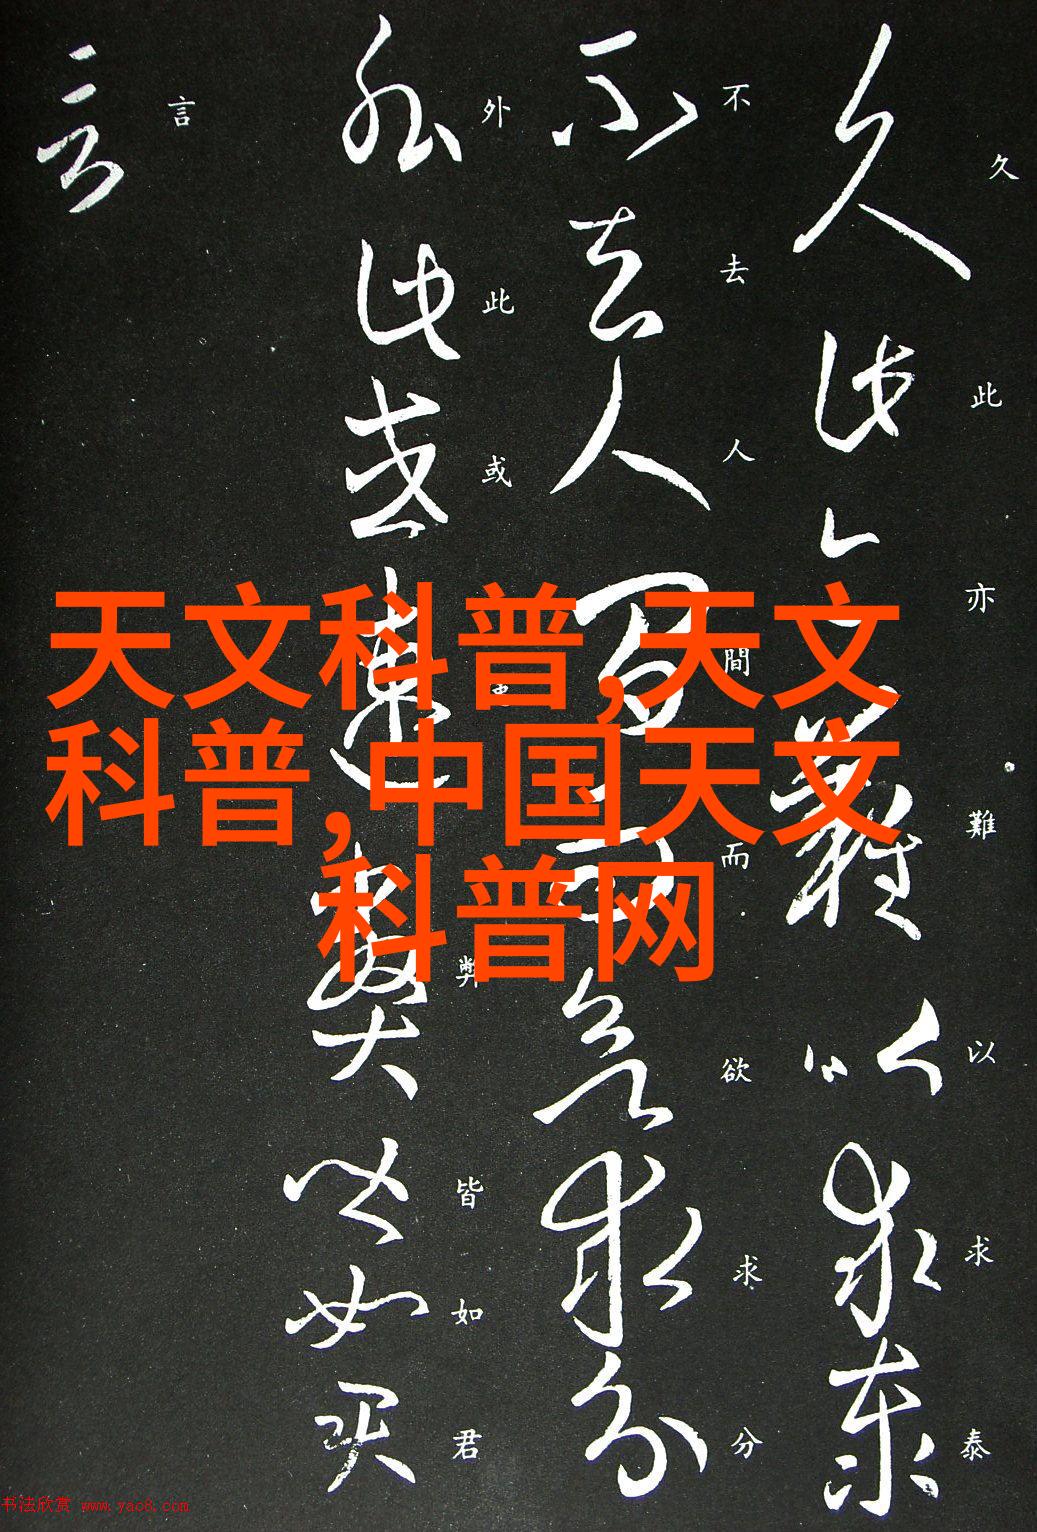 天文科普,天文
科普,中国天文
科普网
久此亦難以求泰
不去人間而欲求分
外此或弊皆如君
言
书法欣赏 www.yac8.com